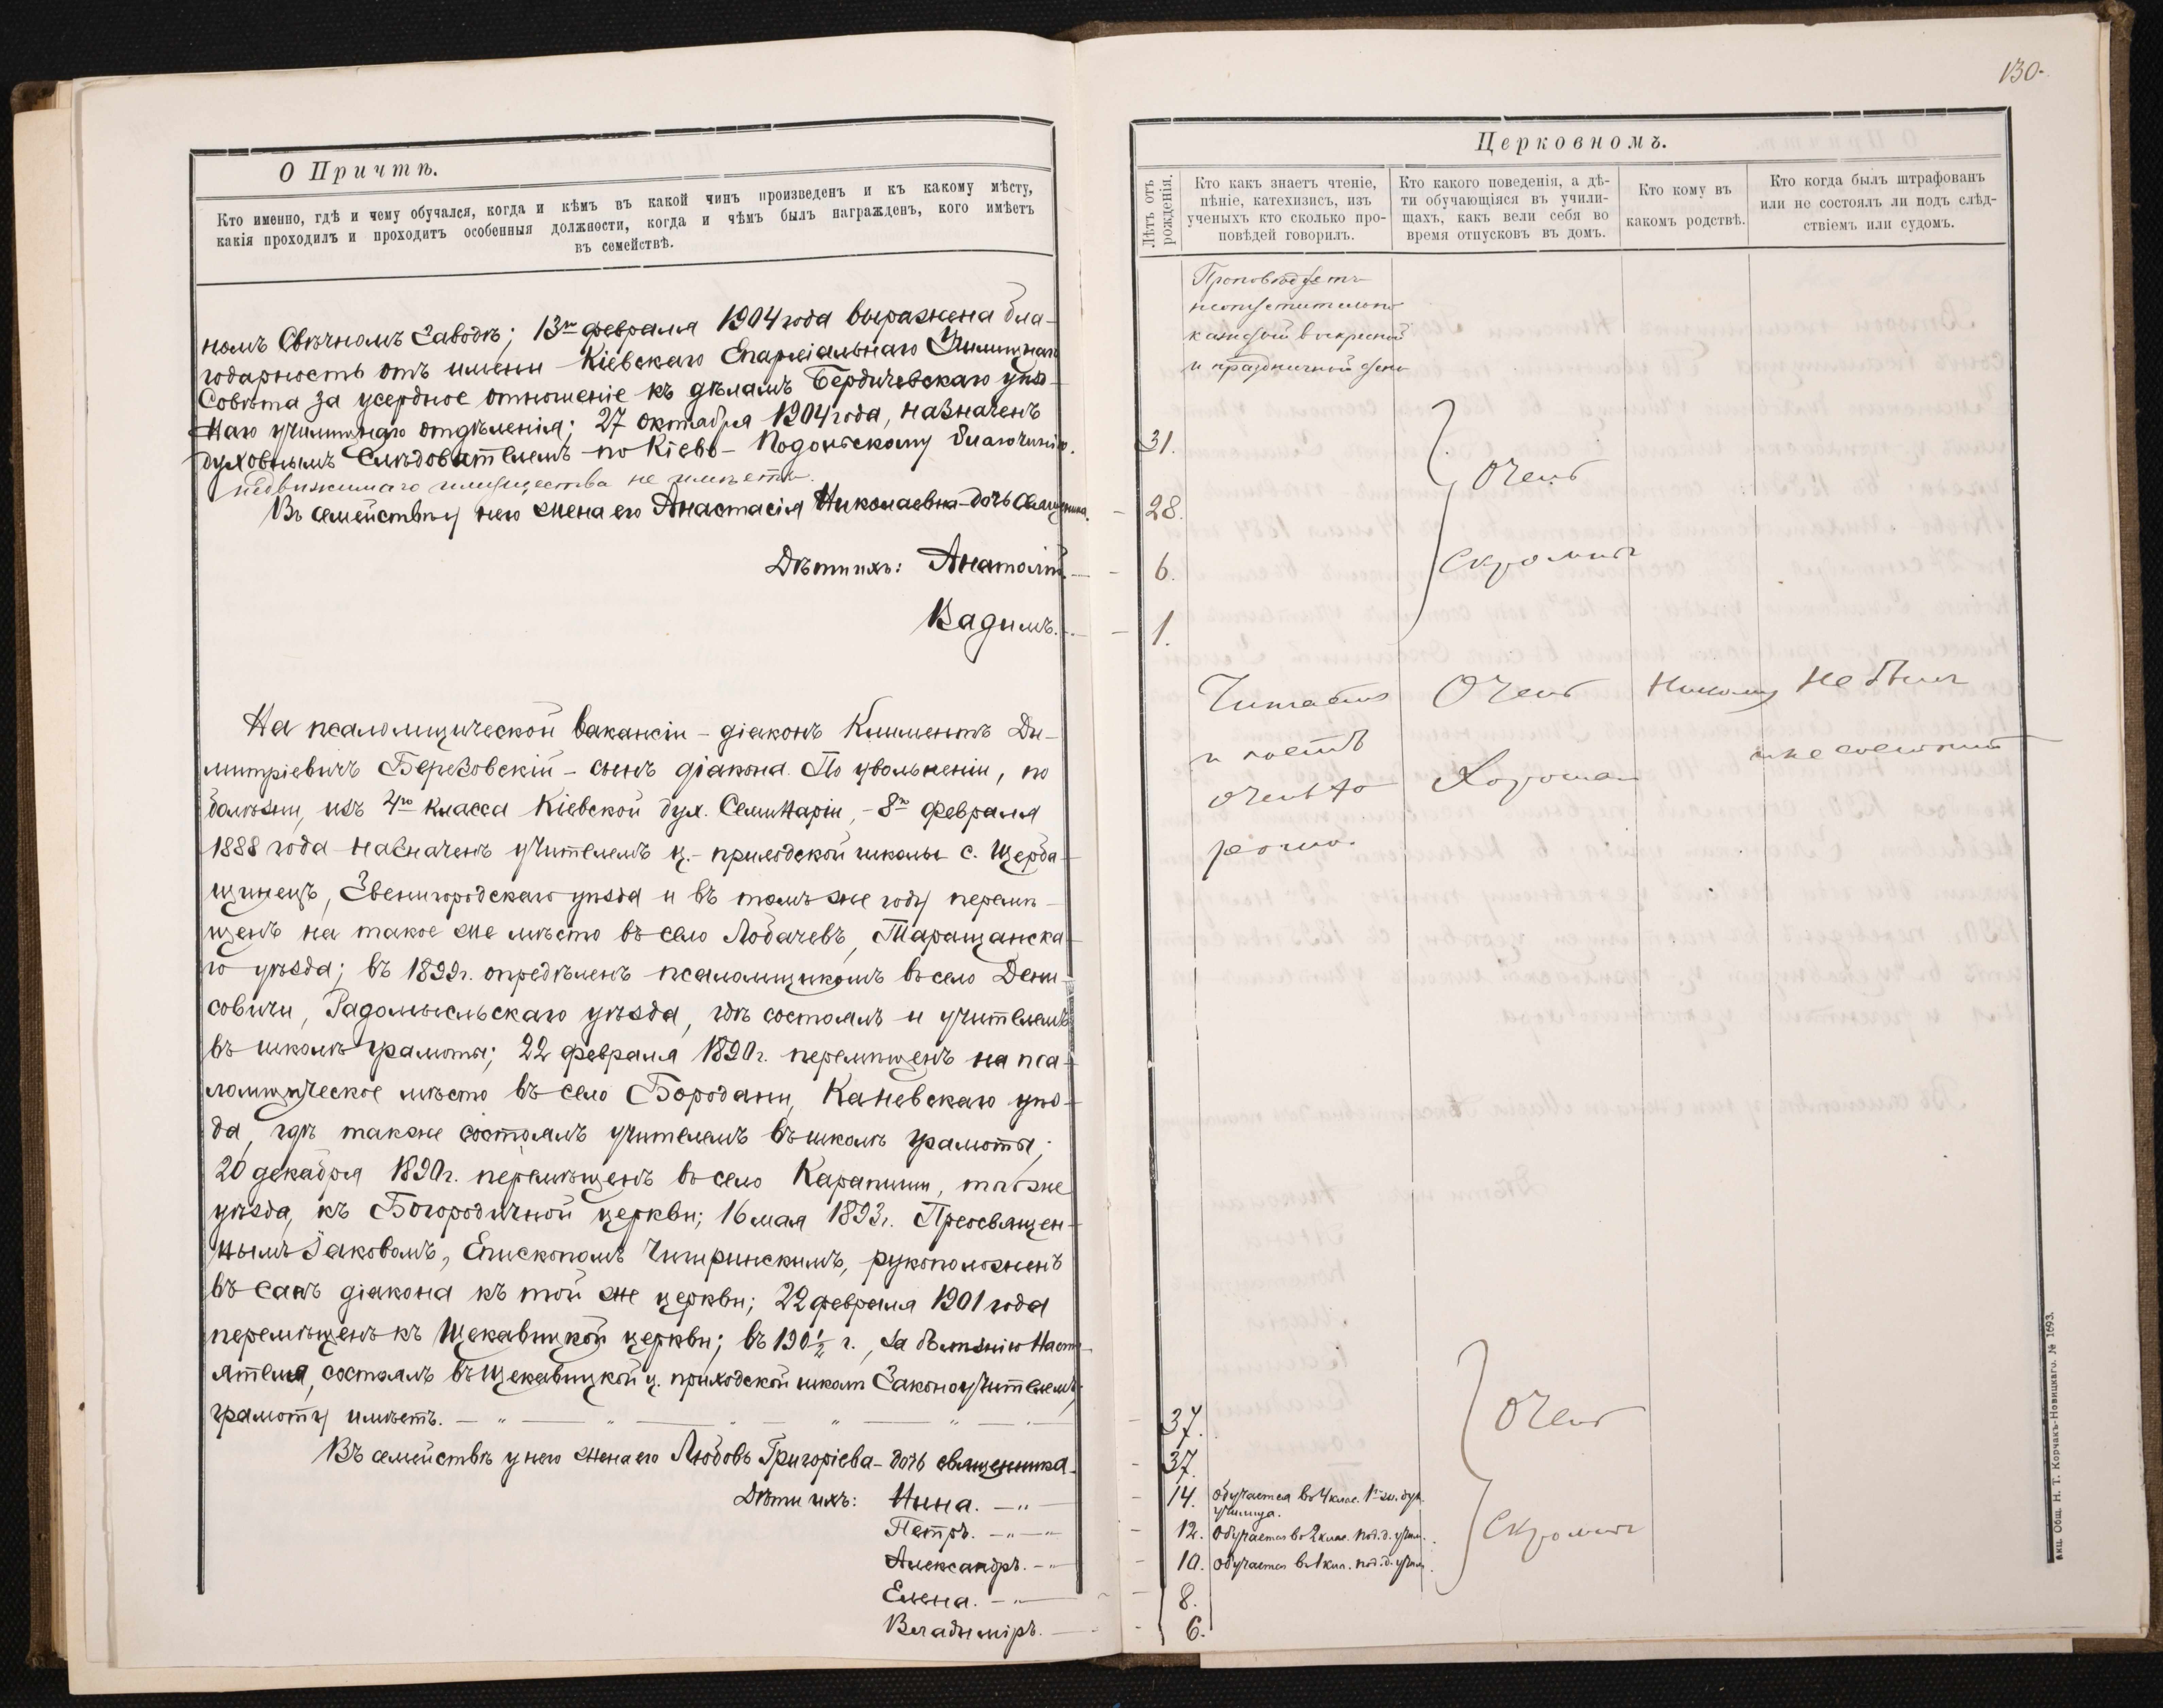 О Причтѣ.
Кто именно, гдѣ и чему обучался, когда и кѣмъ въ какой чинъ произведенъ и къ какому мѣсту,
какія проходилъ и проходитъ особенныя должности, когда и чѣмъ былъ награжденъ, кого имѣетъ
въ семействѣ.
номъ Свѣчномъ Заводѣ; 13го февраля 1904 года выражена бла-
годарность отъ имени Кіевскаго Епархіальнаго Училищнаго
Совѣта за усердное отношеніе къ дѣламъ Бердичевскаго уѣзд-
наго училищнаго отдѣленія; 27 октября 1904 года, назначенъ
духовнымъ Слѣдователемъ по Кіево-Подольскому благочинію.
недвижимаго имущества не имѣетъ.
Въ семействѣ у него жена его Анастасія Николаевна - дочь священника.
Дѣти ихъ: Анатолій. —
Вадимъ. —
На псаломщической вакансіи - діаконъ Климентъ Ди-
митріевичъ Березовскій - сынъ діакона. По увольненіи, по
болѣзни, изъ 4го класса Кіевской дух. Семинаріи, - 8го февраля
1888 года назначенъ учителемъ ц.-приходской школы с. Щерба-
шинецъ, Звенигородскаго уѣзда и въ томъ же году перемѣ-
щенъ на такое же мѣсто въ село Лобачевъ, Таращанска-
го уѣзда; въ 1889г. опредѣленъ псаломщикомъ въ село Дени-
совичи, Радомысльскаго уѣзда, гдѣ состоялъ и учителемъ
въ школѣ грамоты; 22 февраля 1890г. перемѣщенъ на пса-
ломщическое мѣсто въ село Бородани, Каневскаго уѣз-
да, гдѣ также состоялъ учителемъ въ школѣ грамоты;
20 декабря 1890г. перемѣщенъ въ село Карапиши, того же
уѣзда, къ Богородичной церкви; 16 мая 1893г. Преосвящен-
нымъ Іаковомъ, Епископомъ Чигиринскимъ, рукоположенъ
въ санъ діакона къ той же церкви; 22 февраля 1901 года
перемѣщенъ къ Щекавицкой церкви; въ 190½ г., за болѣзнію Насто-
ятеля, состоялъ въ Щекавицкой ц. приходской школѣ Законоучителемъ;
грамоту имѣетъ. —
Въ семействѣ у него жена его Любовь Григоріева - дочь священника -
Дѣти ихъ: Нина. —
Петръ. —
Александръ. —
Елена. —
Владиміръ. —
130.
Церковномъ.
Лѣтъ отъ рожденія.
Кто какъ знаетъ чтеніе,
пѣніе, катехизисъ, изъ
ученыхъ кто сколько про-
повѣдей говорилъ.
Кто какого поведенія, а дѣ-
ти обучающіяся въ учили-
щахъ, какъ вели себя во
время отпусковъ въ домъ.
Кто кому въ
какомъ родствѣ.
Кто когда былъ штрафованъ
или не состоялъ ли подъ слѣд-
ствіемъ или судомъ.
Проповѣдуетъ
неопустительно
каждый воскресный
и праздничный день
31.
28.
6.
1.
Очень
скромны
Читаетъ
и поетъ
очень хо
рошо.
Очень
Хорошаго
Никому
Не былъ
и не состоитъ
37.
37.
14. обучается въ 4 клас. 1го ж. дух.
училища.
12. обучается во 2 клас. под. д. учил.
10. обучается в 1 кл. под. д. учил.
8.
6.
Очень
скромны
Акц. Общ. Н. Т. Корчакъ-Новицкаго. № 1693.